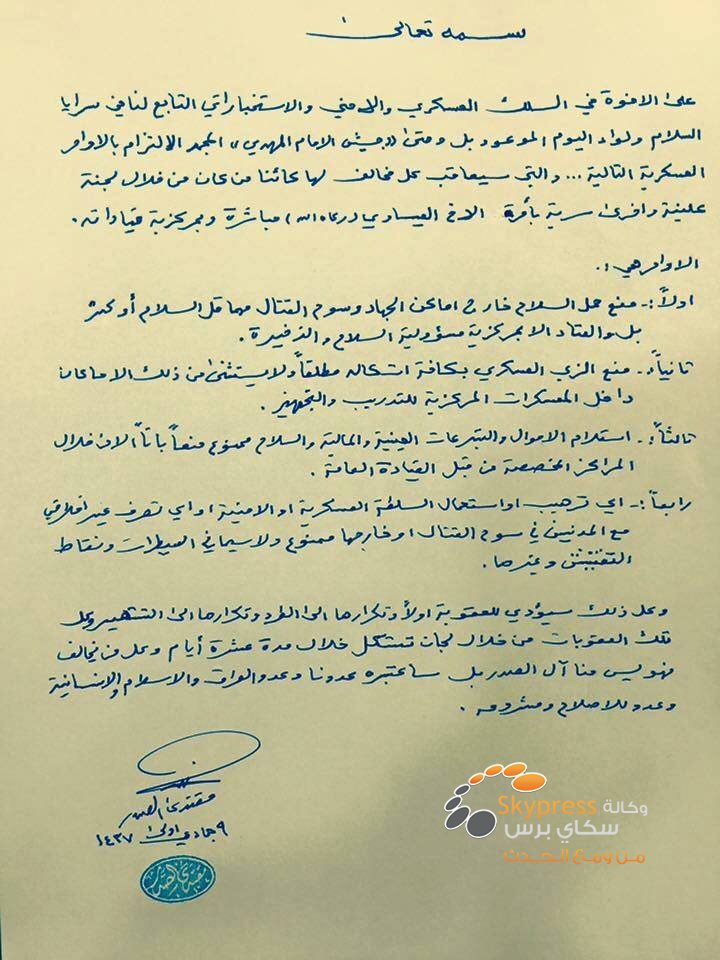 بسمه تعالى
على الاخوة في السلك العسكري والامني والاستخباراتي التابع لنا في سرايا
السلام ولواء اليوم الموعود بل وحتى ((جيش الامام المهدي)) المجمد الالتزام بالاوامر
العسكرية التالية ... والتي سيعاقب كل مخالف لها كائناً من كان من خلال لجنة
علنية واخرى سرية بأمرة الاخ العيساوي (رعاه الله) مباشرة وبمركزية قياداته.
الاوامر هي :.
اولاً :- منع حمل السلاح خارج اماكن الجهاد وسوح القتال مهما قل السلاح أو كثر
بل والعتاد الا بمركزية مسؤولية السلاح والذخيرة.
ثانياً :- منع الزي العسكري بكافة اشكاله مطلقاً ولا يستثنى من ذلك الا ما كان
داخل المعسكرات المركزية للتدريب والتجهيز.
ثالثاً :- استلام الاموال والتبرعات العينية والمالية والسلاح ممنوع منعاً باتاً الا من خلال
المراكز المخصصة من قبل القيادة العامة.
رابعاً :- اي ترهيب او استعمال السلطة العسكرية او الامنية او اي تصرف غير اخلاقي
مع المدنيين في سوح القتال او خارجها ممنوع ولا سيما في السيطرات ونقاط
التفتيش وغيرها.
وكل ذلك سيؤدي للعقوبة اولاً وتكرارها الى الطرد وتكرارها الى التشهير وكل
تلك العقوبات من خلال لجان تشكل خلال مدة عشرة أيام وكل من يخالف
فهو ليس منا آل الصدر بل سأعتبره عدونا وعدو العراق والاسلام والانسانية
وعدو للاصلاح ومشروعه.
مقتدى الصدر
٩ جمادي اولى ١٤٣٧
وكالة Skypress
سكاي برس
مـن ومـع الـحـدث